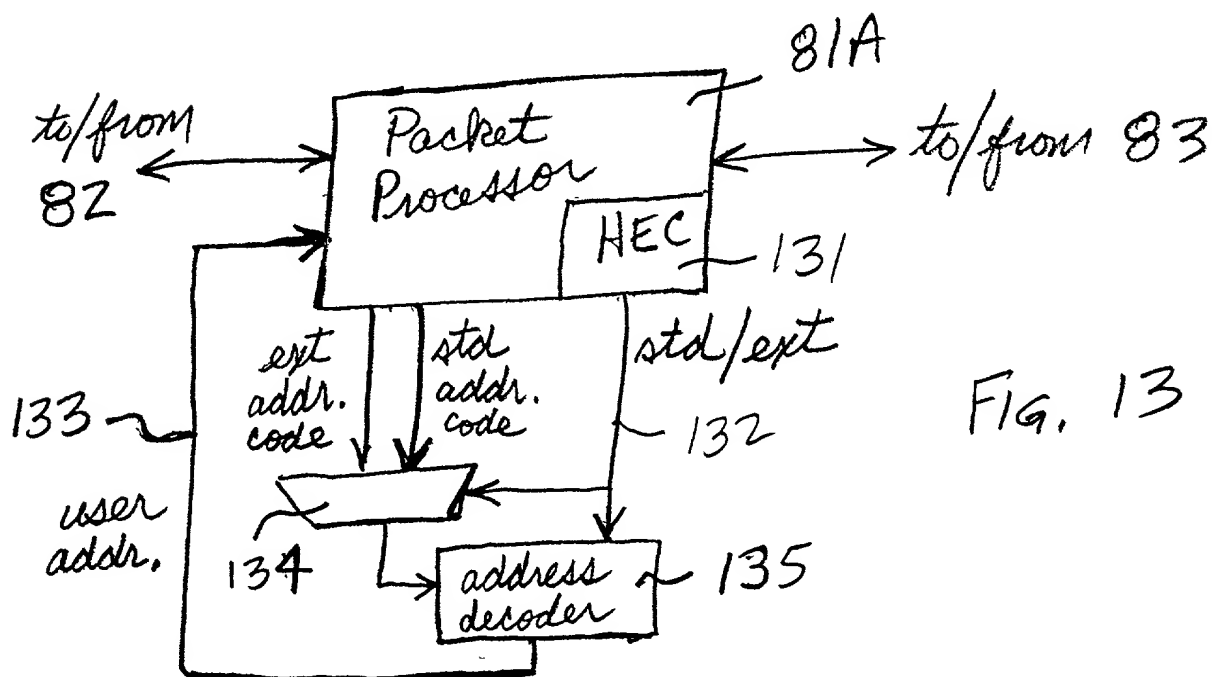 81A
to/from
82
Packet
Processor
to/from 83
HEC
131
ext
addr.
code
std
addr.
code
std/ext
132
133
user
addr.
134
address
decoder
135
FIG. 13